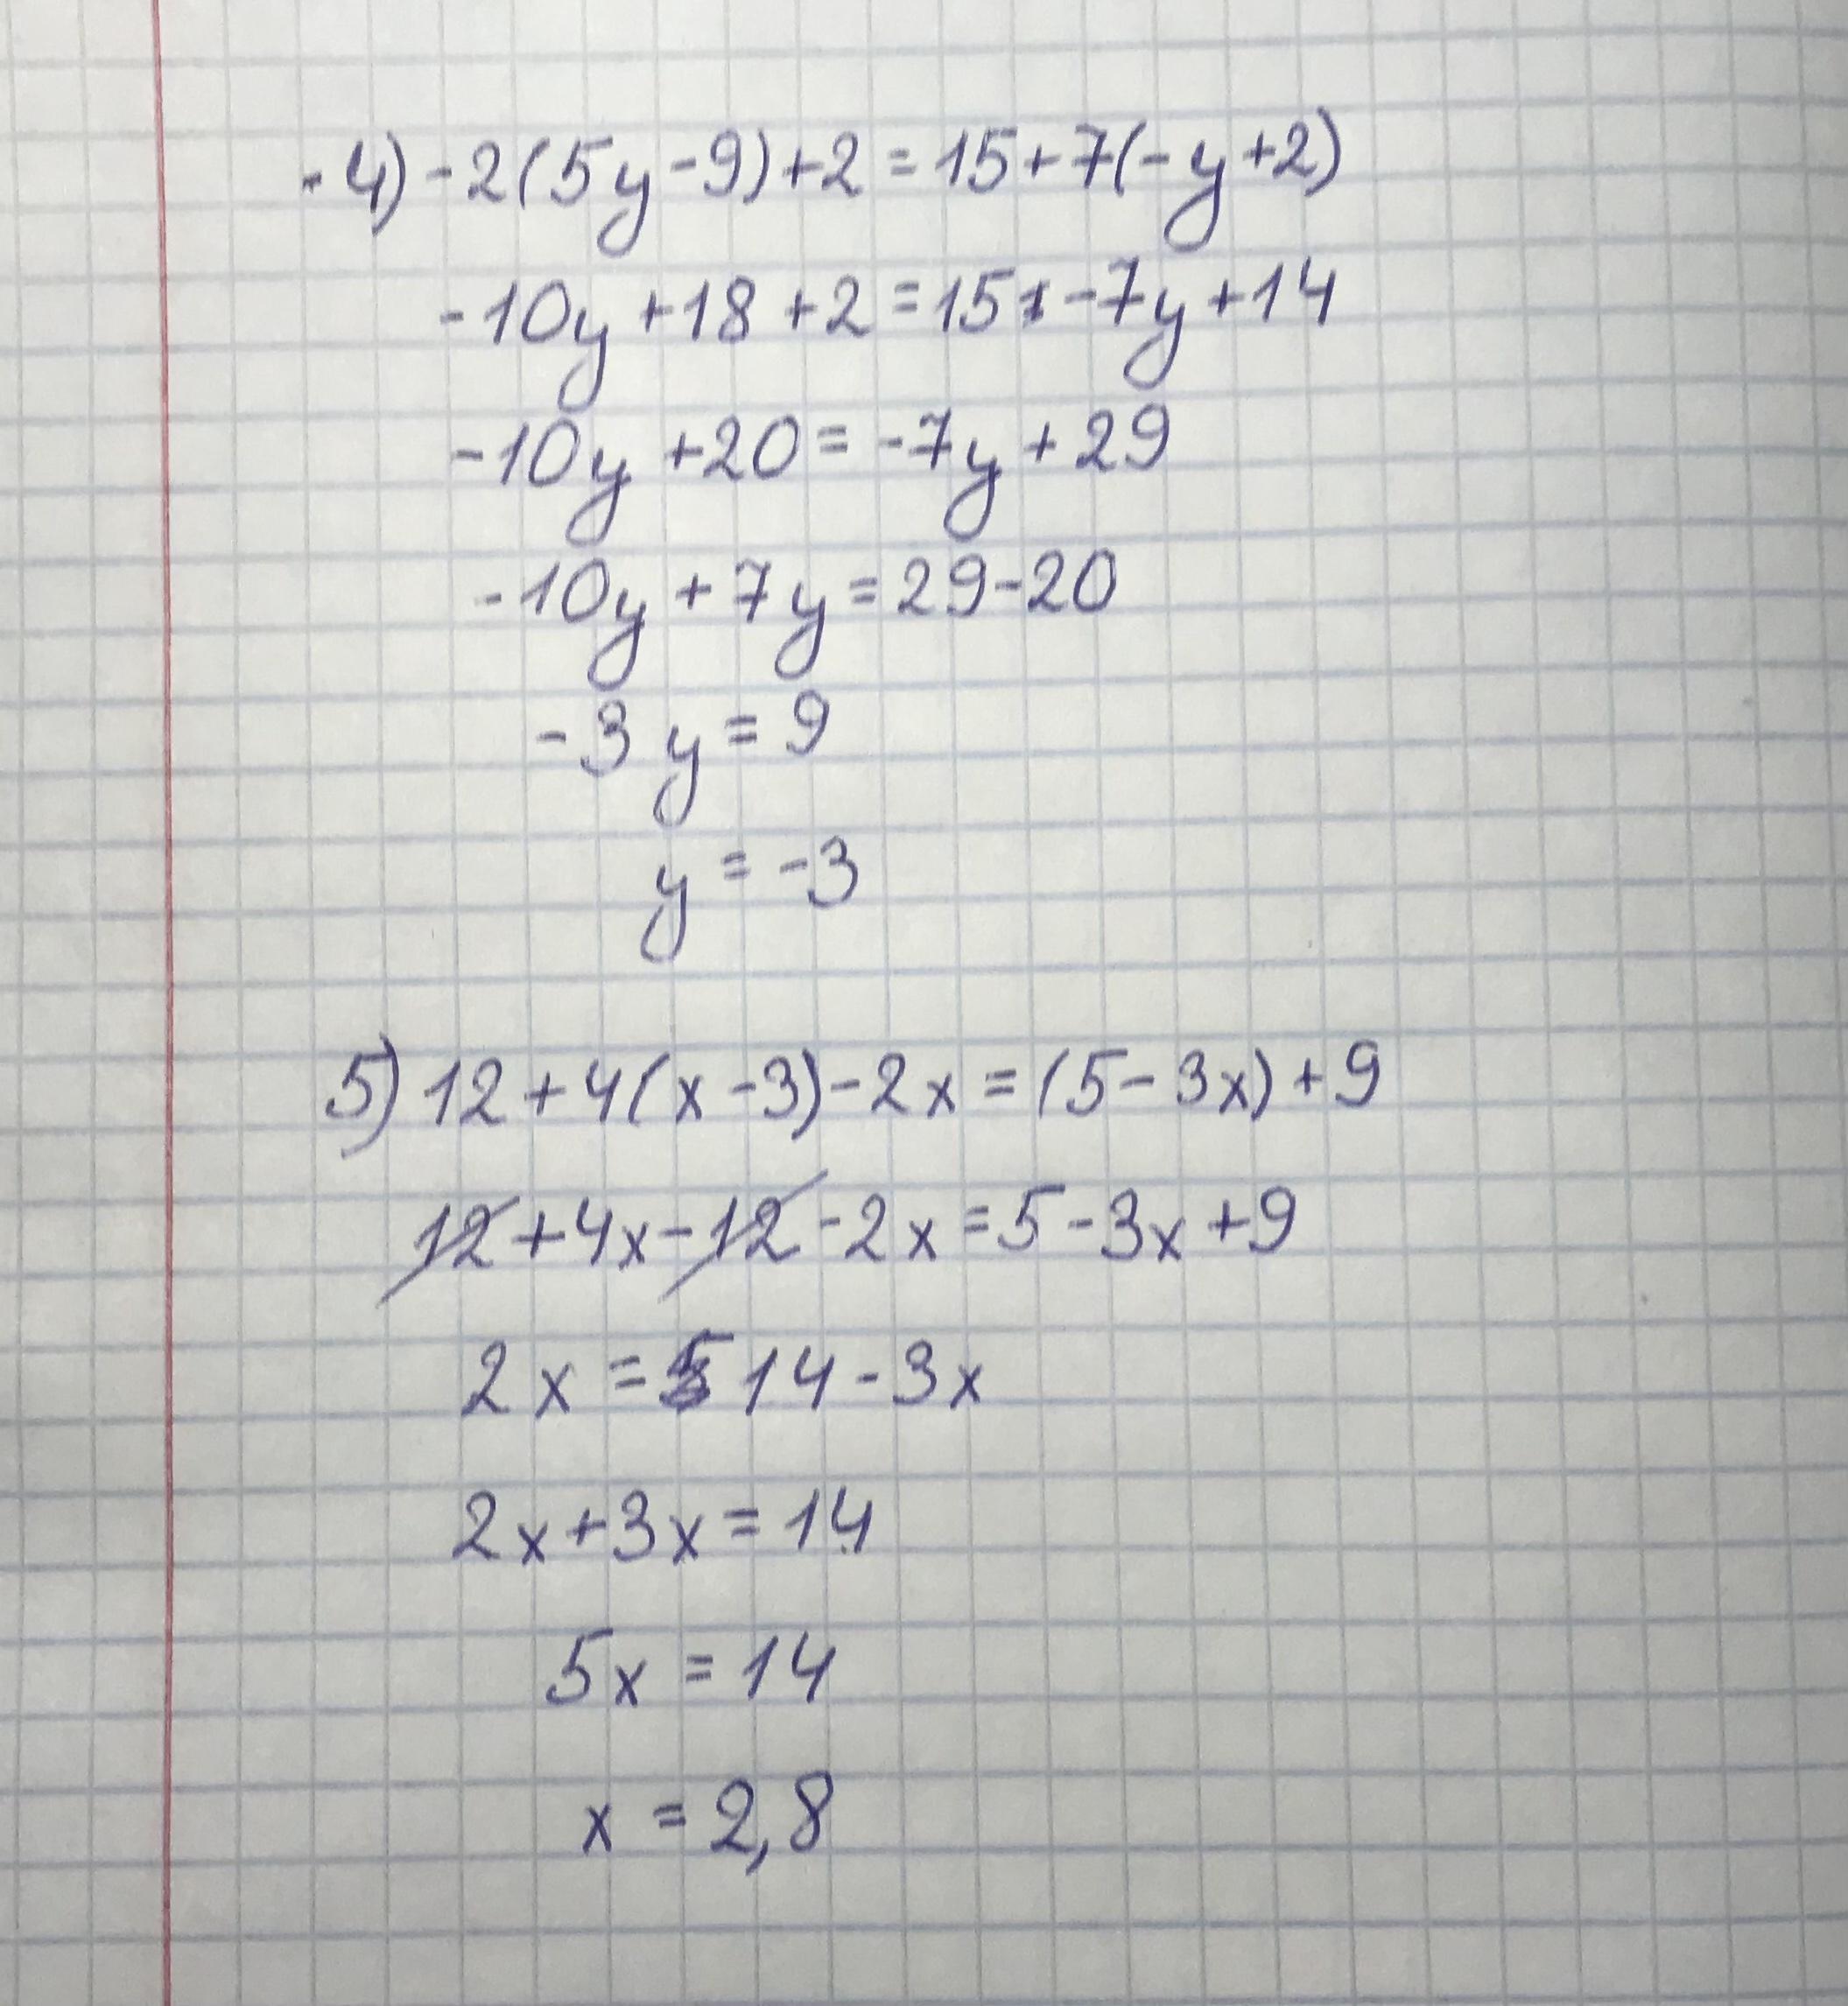 4) -2(5y-9)+2=15+7(-y+2)
-10y+18+2=15-7y+14
-10y+20=-7y+29
-10y+7y=29-20
-3y=9
y=-3
5) 12+4(x-3)-2x=(5-3x)+9
12+4x-12-2x=5-3x+9
2x=14-3x
2x+3x=14
5x=14
x=2,8